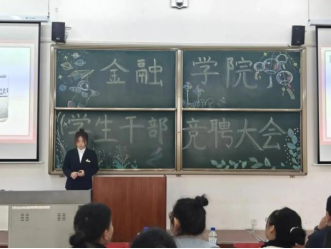 金融学院
学生干部竞聘大会